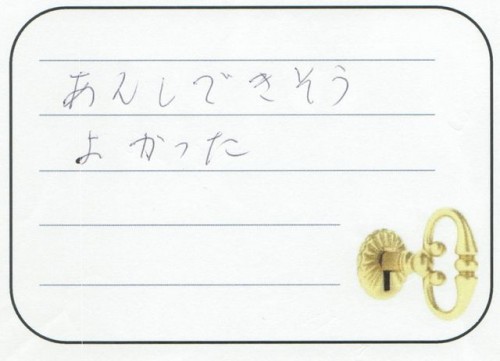 あんしできそう
よかった